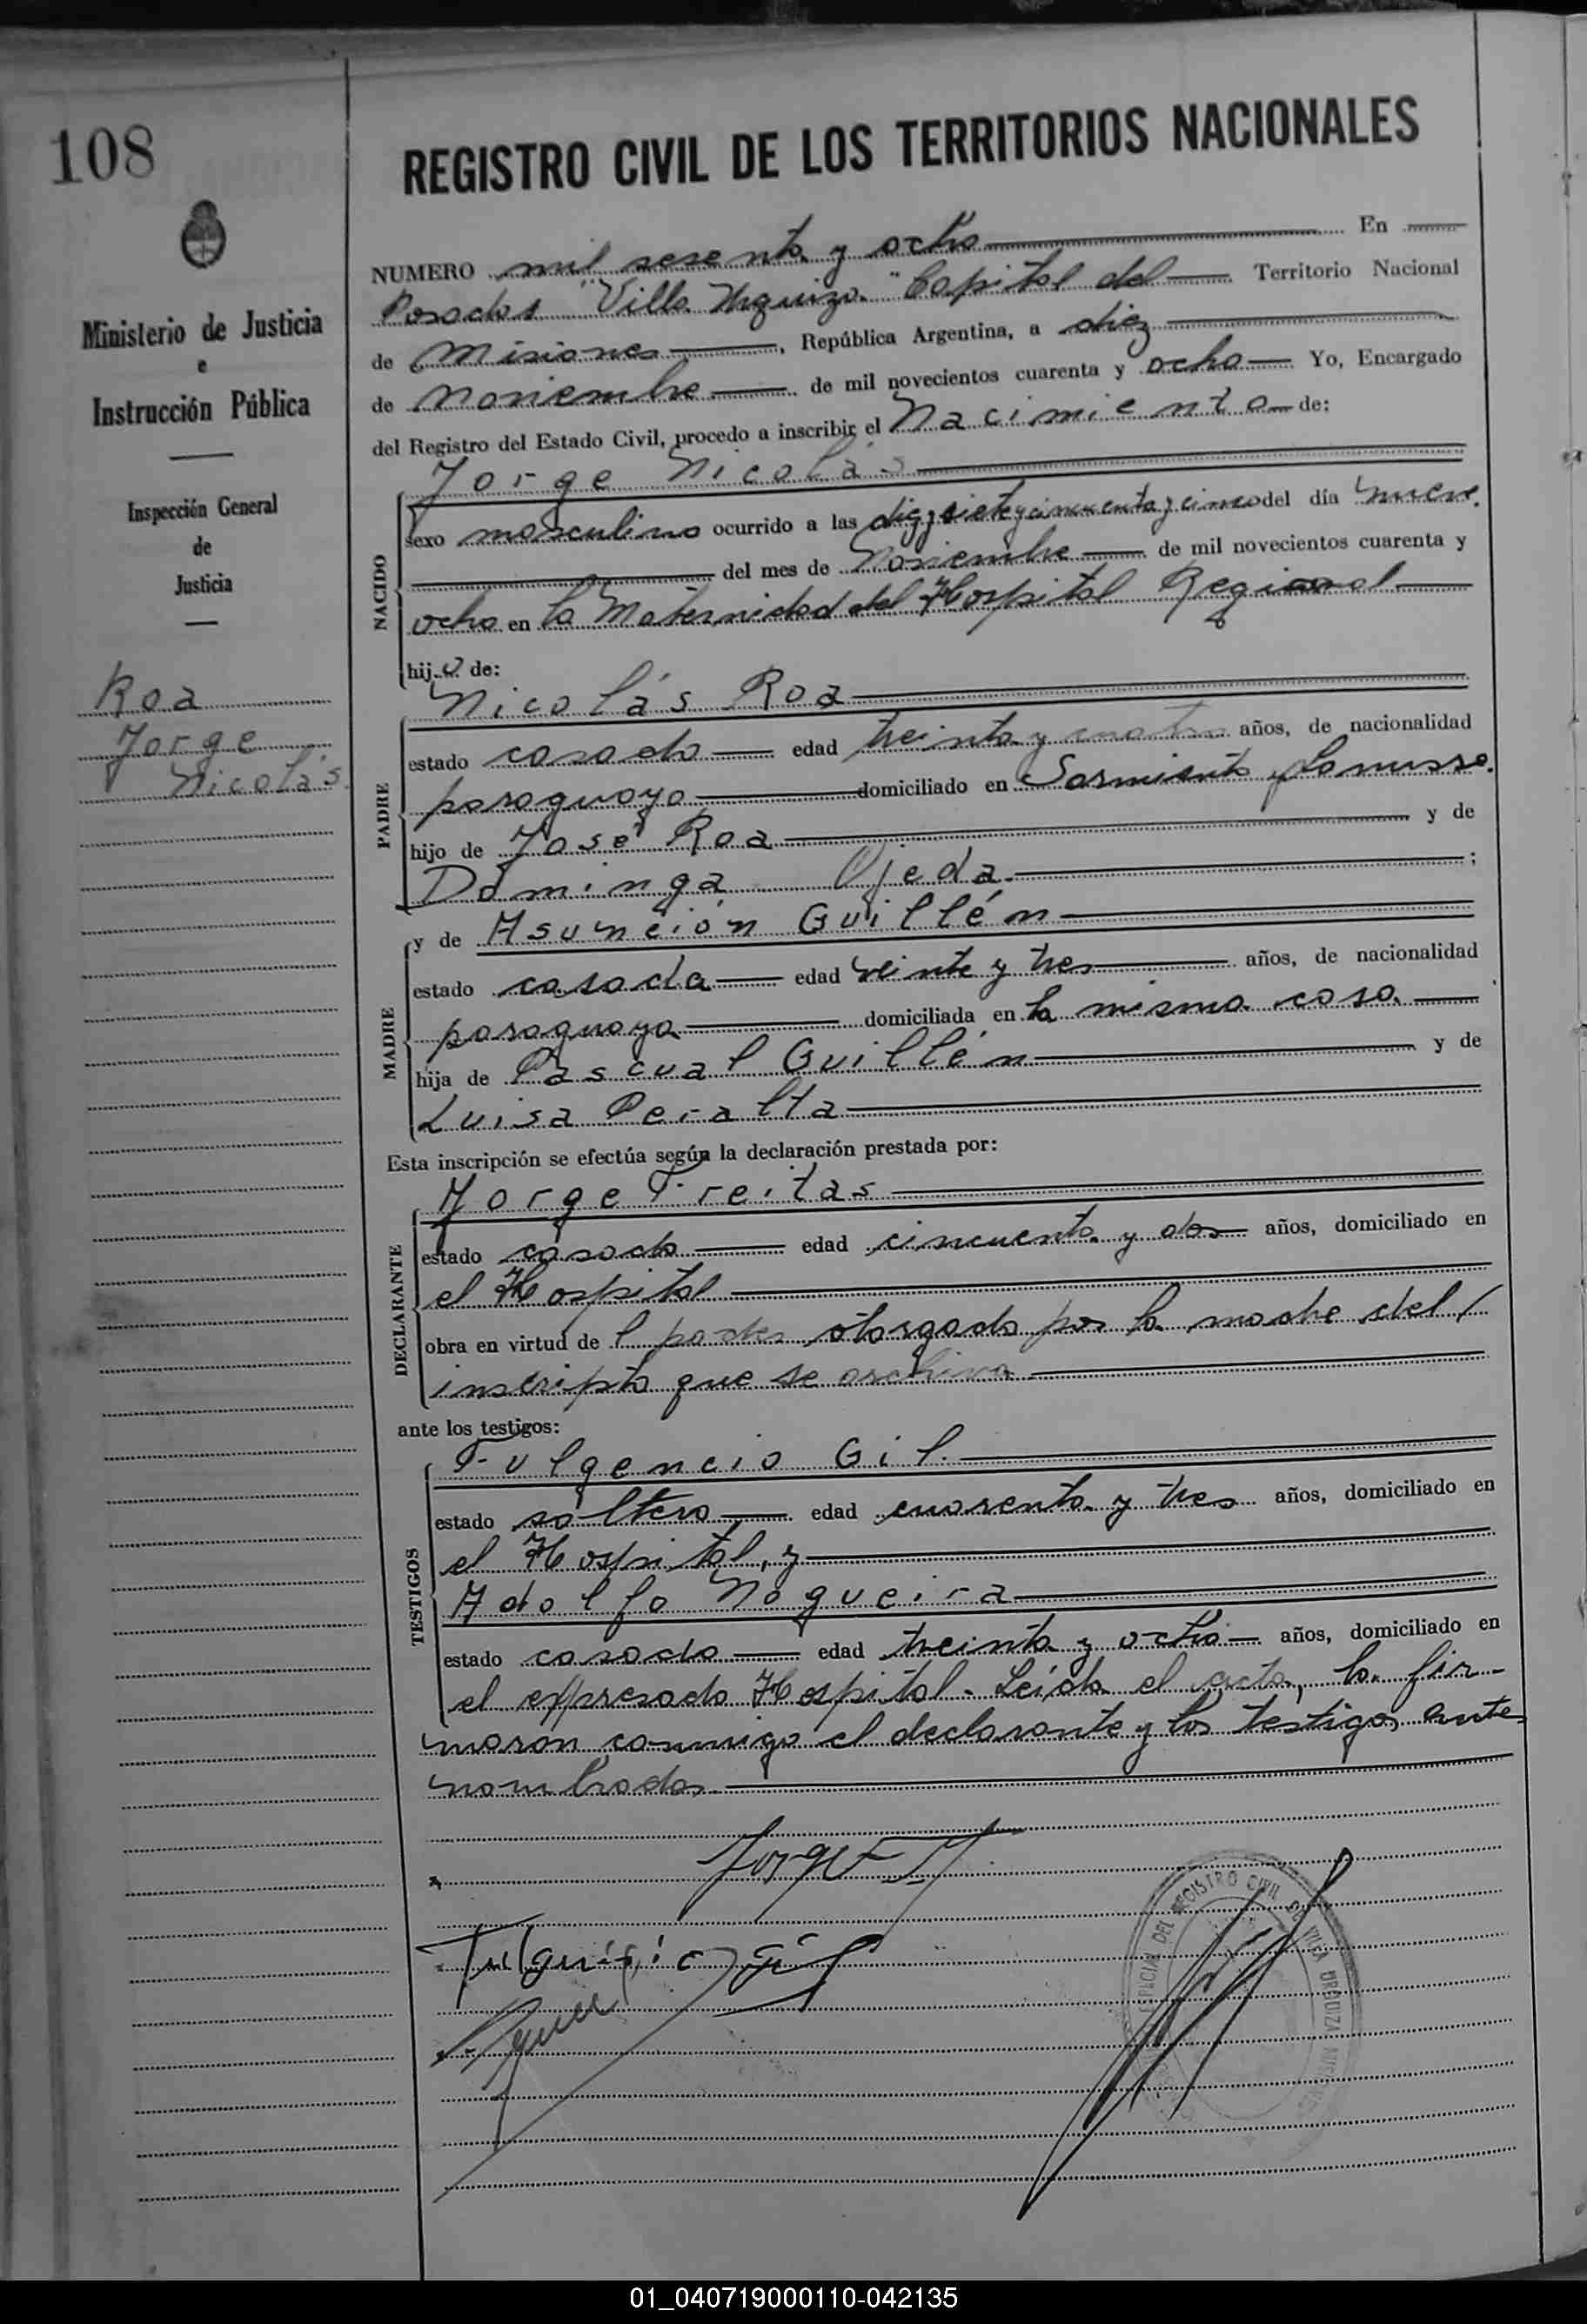 108
REGISTRO CIVIL DE LOS TERRITORIOS NACIONALES
Ministerio de Justicia
e
Instrucción Pública
Inspección General
de
Justicia
Roa
Jorge
Nicolás
NUMERO mil sesenta y ocho En
Posadas "Villa Urquiza" Capital del Territorio Nacional
de Misiones, República Argentina, a diez
de Noviembre de mil novecientos cuarenta y ocho Yo, Encargado
del Registro del Estado Civil, procedo a inscribir el Nacimiento de:
NACIDO
Jorge Nicolás
sexo masculino ocurrido a las diez y siete y cincuenta y cinco del día nueve
del mes de Noviembre de mil novecientos cuarenta y
ocho en la Maternidad del Hospital Regional
hijo de:
PADRE
Nicolás Roa
estado casado edad treinta y cuatro años, de nacionalidad
paraguaya domiciliado en Sarmiento y
hijo de José Roa y de
Dominga Ojeda. ;
MADRE
y de Asunción Guillén
estado casada edad veinte y tres años, de nacionalidad
paraguaya domiciliada en la misma casa
hija de Pascual Guillén y de
Luisa Peralta
Esta inscripción se efectúa según la declaración prestada por:
DECLARANTE
Jorge Freitas
estado casado edad cincuenta y dos años, domiciliado en
el Hospital
obra en virtud de l poder otorgado por la madre del /
inscripto que se archiva
ante los testigos:
TESTIGOS
Fulgencio Gil.
estado soltero edad cuarenta y tres años, domiciliado en
el Hospital, y
Adolfo Nogueira
estado casado edad treinta y ocho años, domiciliado en
el expresado Hospital. Leída el acta, la fir-
maron conmigo el declarante y los testigos ante
nombrados.
Jorge
Fulgencio Gil
DEL REGISTRO CIVIL DE VILLA URQUIZA
01_040719000110-042135